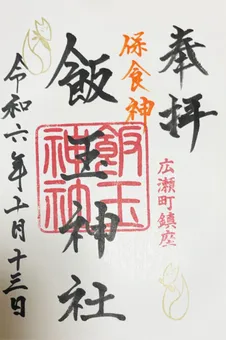 奉拝
広瀬町鎮座
保食神
飯玉神社
飯玉神社
令和六年十月十三日